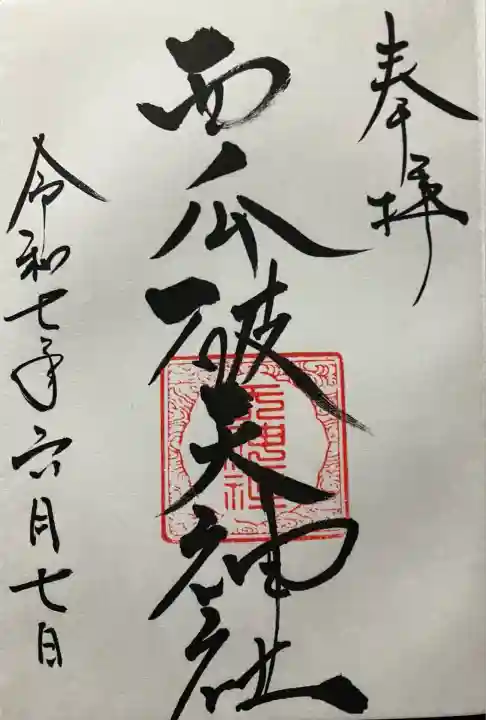 奉拝
西瓜破天神社
令和七年六月七日